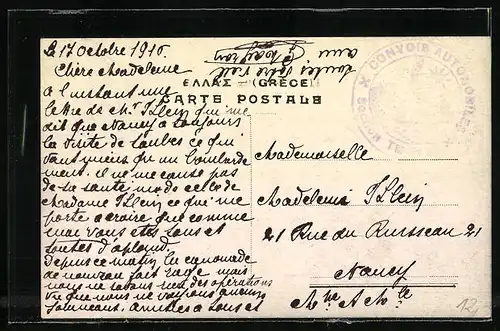 Le 17 Octobre 1916.
Chère Madeleine
à l'instant une
lettre de Mr Klein qui me
dit que Nancy a toujours
la visite de taubes ce qui
vaut mieux qu'un bombarde
ment. Il ne me cause pas
de sa santé mais de celle de
Madame Klein ce qui me
porte à croire que comme
moi vous êtes tous et
toutes d'aplomb.
Depuis ce matin la canonnade
de nouveau fait rage mais
nous ne savons rien des opérations
vu que nous ne voyons aucuns
journeaux. Amitiés à tous et
toutes votre vieil
ami
ΕΛΛΑΣ — (GRÈCE)
CARTE POSTALE
CONVOIS AUTOMOBILES
Mademoiselle
Madeleine Klein
21 Rue du Ruisseau 21
Nancy
Mthe & Mlle
12